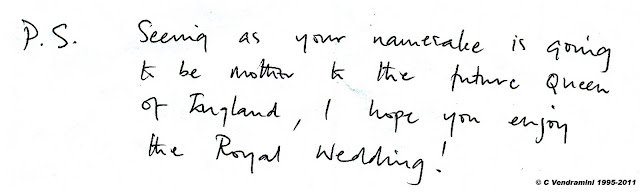 P.S. Seeing as your namesake is going
to be mother to the future Queen
of England, I hope you enjoy
the Royal Wedding!
© C Vendramini 1995-2011